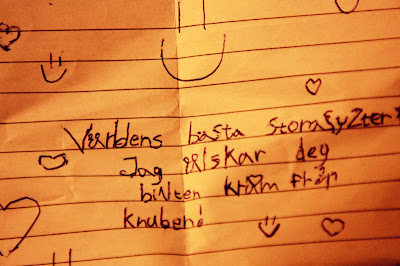 Världens basta StoraSyZter!
Jag älskar dej
kram från
knuben!